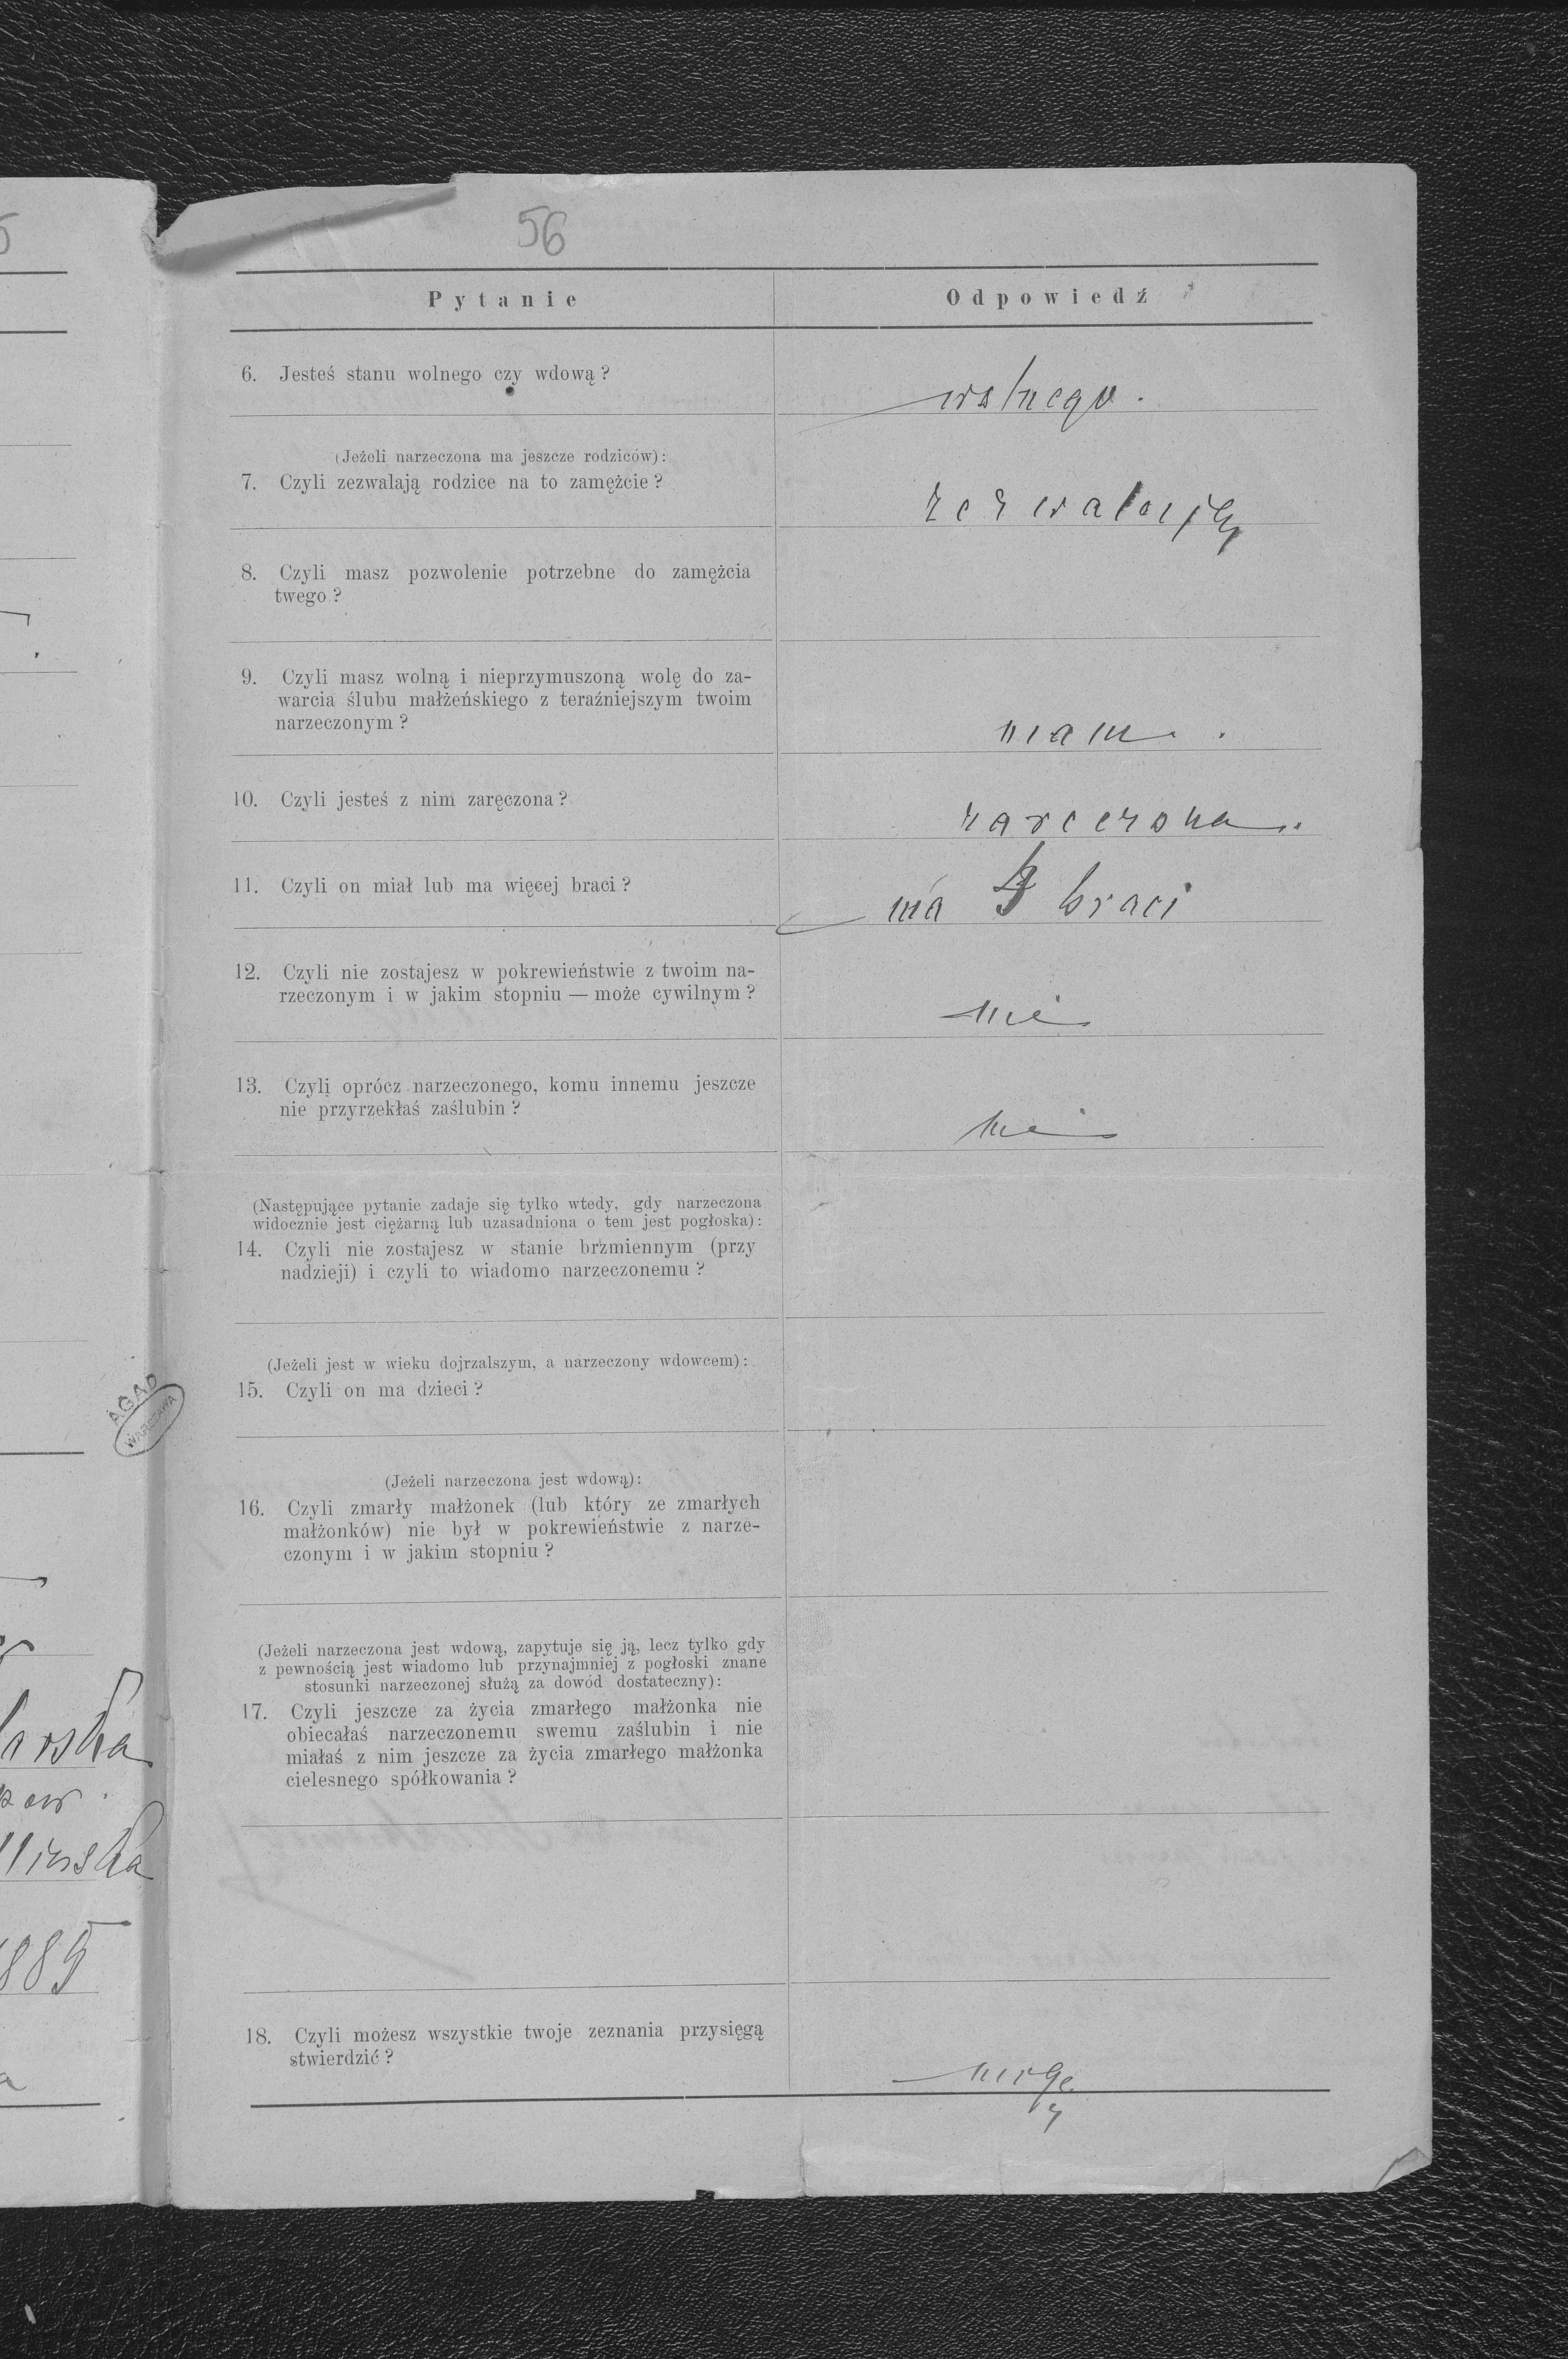 56
Pytanie
Odpowiedź
6. Jesteś stanu wolnego czy wdową?
wolnego.
(Jeżeli narzeczona ma jeszcze rodziców):
7. Czyli zezwalają rodzice na to zamężcie?
zezwalają
8. Czyli masz pozwolenie potrzebne do zamężcia
twego?
9. Czyli masz wolną i nieprzymuszoną wolę do za-
warcia ślubu małżeńskiego z teraźniejszym twoim
narzeczonym?
mam.
10. Czyli jesteś z nim zaręczona?
zareczona.
11. Czyli on miał lub ma więcej braci?
ma braci
12. Czyli nie zostajesz w pokrewieństwie z twoim na-
rzeczonym i w jakim stopniu — może cywilnym?
nie
13. Czyli oprócz narzeczonego, komu innemu jeszcze
nie przyrzekłaś zaślubin?
nie
(Następujące pytanie zadaje się tylko wtedy, gdy narzeczona
widocznie jest ciężarną lub uzasadniona o tem jest pogłoska):
14. Czyli nie zostajesz w stanie brzmiennym (przy
nadzieji) i czyli to wiadomo narzeczonemu?
(Jeżeli jest w wieku dojrzalszym, a narzeczony wdowcem):
15. Czyli on ma dzieci?
AGAD
WARSZAWA
(Jeżeli narzeczona jest wdową):
16. Czyli zmarły małżonek (lub który ze zmarłych
małżonków) nie był w pokrewieństwie z narze-
czonym i w jakim stopniu?
(Jeżeli narzeczona jest wdową, zapytuje się ją, lecz tylko gdy
z pewnością jest wiadomo lub przynajmniej z pogłoski znane
stosunki narzeczonej służą za dowód dostateczny):
17. Czyli jeszcze za życia zmarłego małżonka nie
obiecałaś narzeczonemu swemu zaślubin i nie
miałaś z nim jeszcze za życia zmarłego małżonka
cielesnego spółkowania?
18. Czyli możesz wszystkie twoje zeznania przysięgą
stwierdzić?
mogę